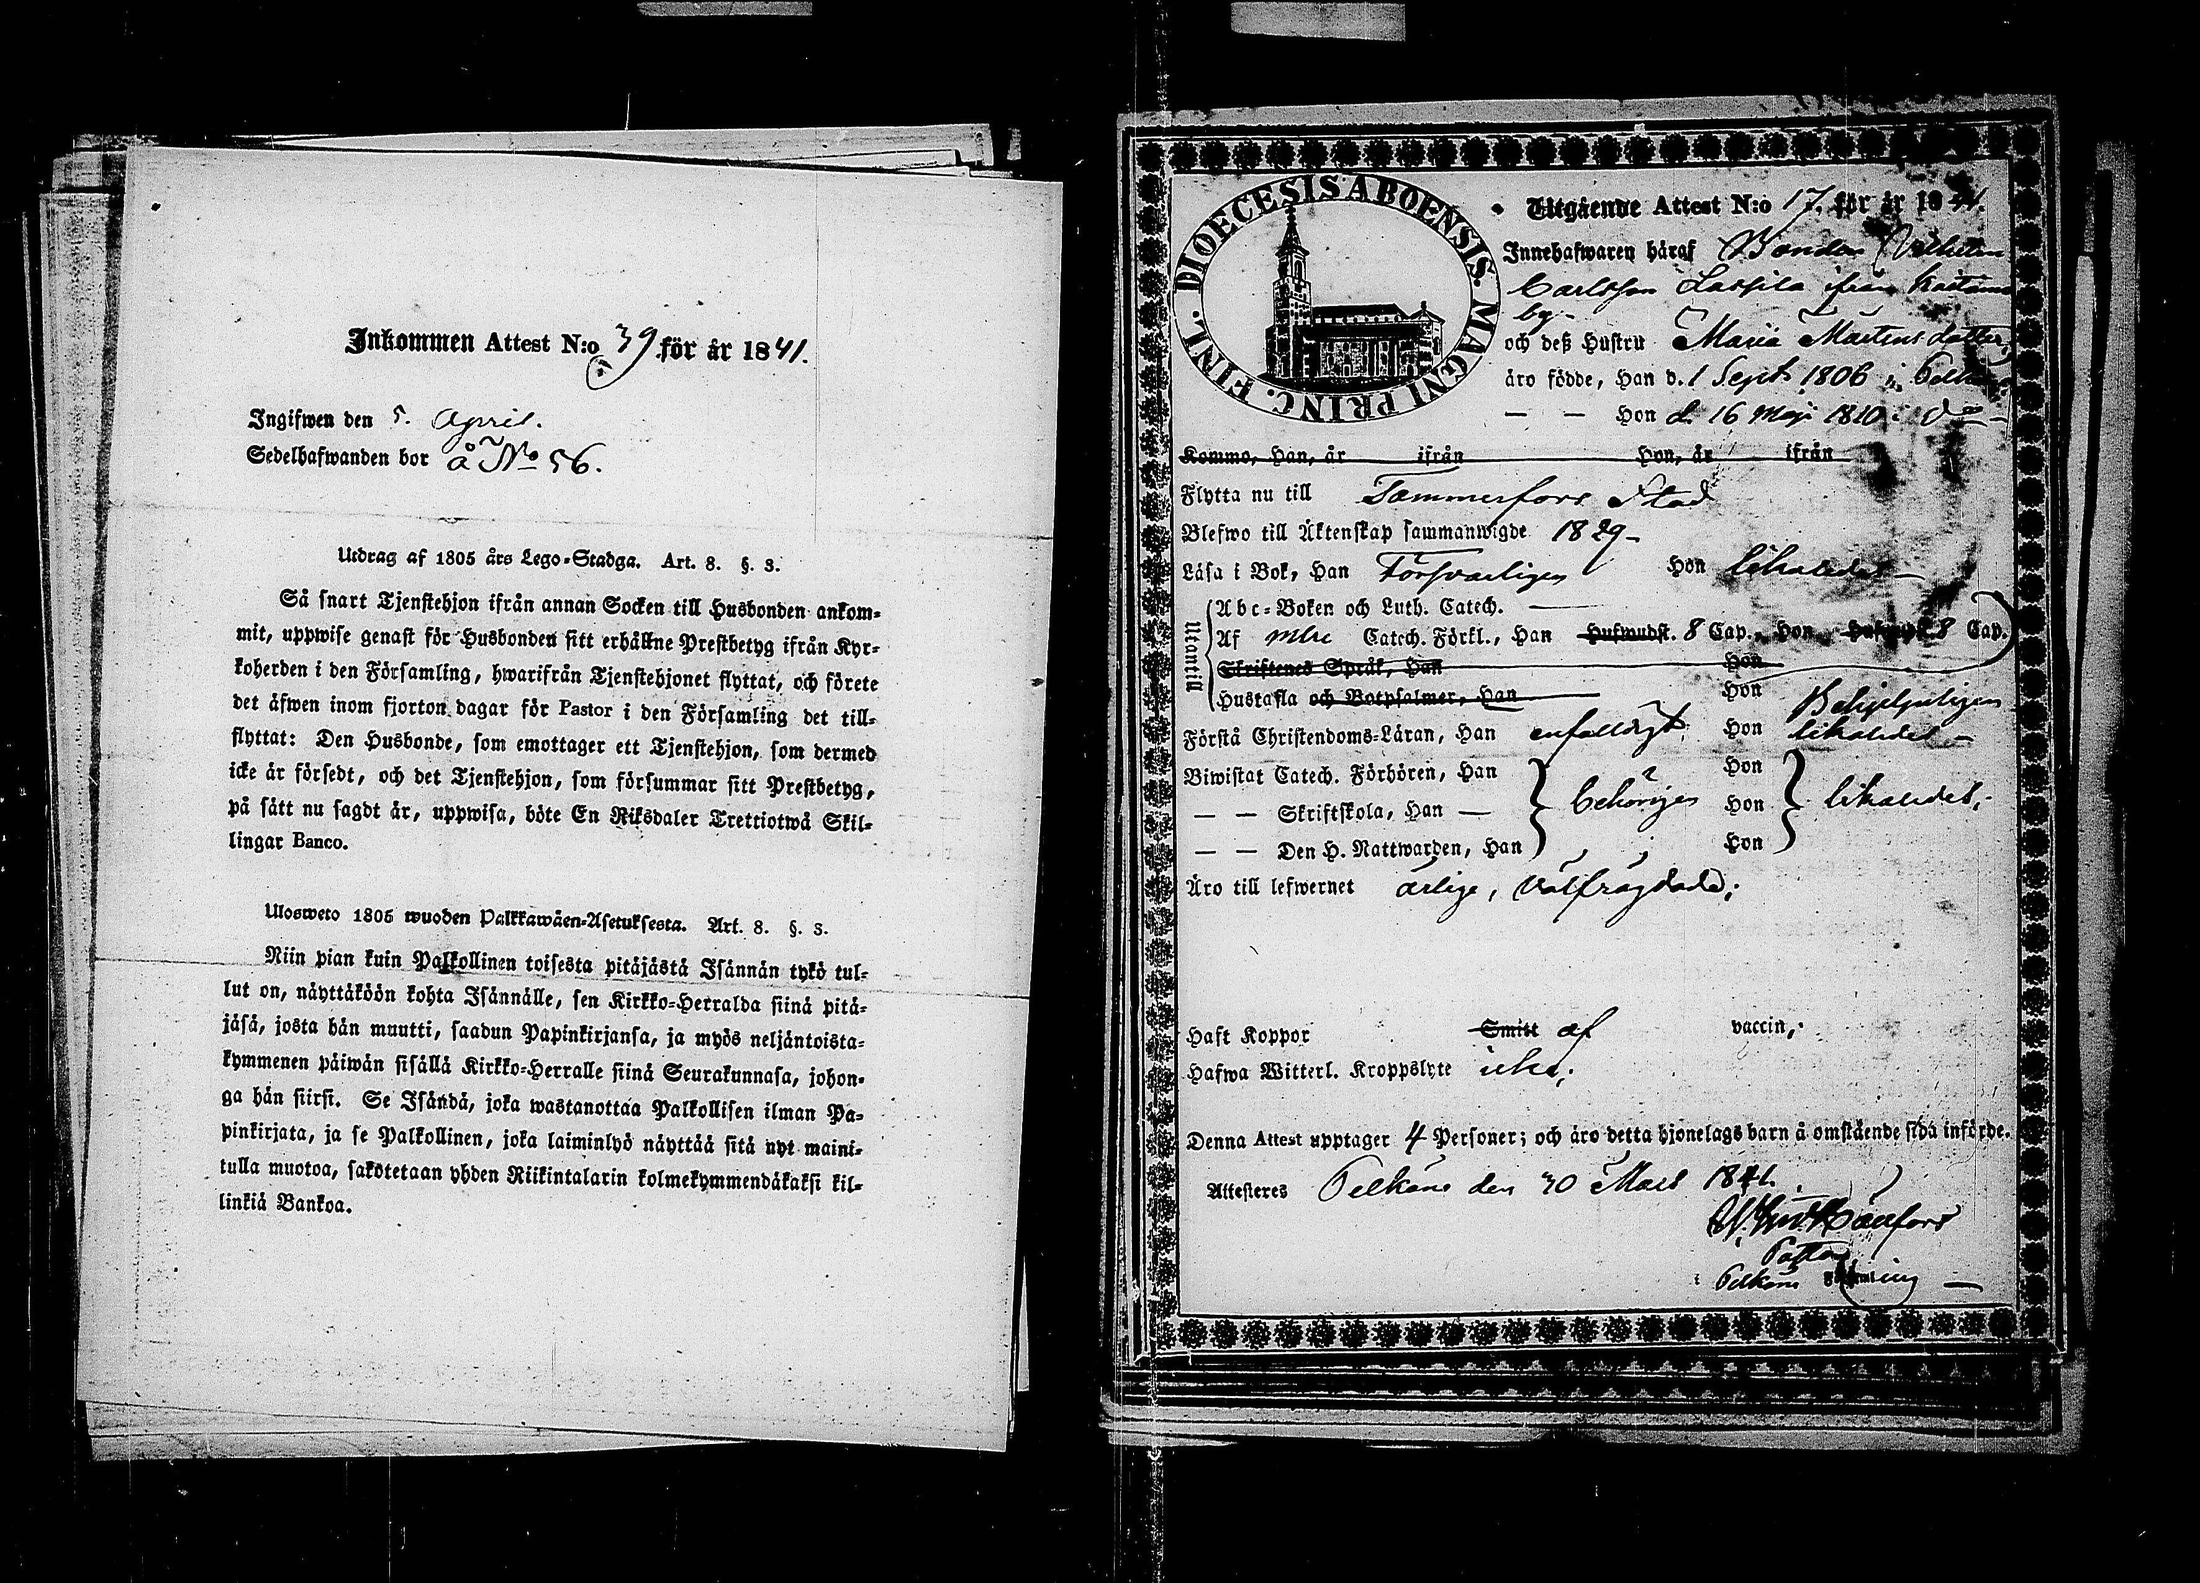 Inkommen Attest N:o 39 för år 1841.
Ingifwen den 5. April.
Sedelhafwanden bor å No 56.
Utdrag af 1805 års Lego-Stadga. Art. 8. §. 3.
Så snart Tjenstehjon ifrån annan Socken till Husbonden ankom-
mit, uppwise genast för Husbonden sitt erhållne Prestbetyg ifrån Kyr-
koherden i den Församling, hwarifrån Tjenstehjonet flyttat, och förete
det äfwen inom fjorton dagar för Pastor i den Församling det till-
flyttat: Den Husbonde, som emottager ett Tjenstehjon, som dermed
icke är försedt, och det Tjenstehjon, som försummar sitt Prestbetyg,
på sätt nu sagdt är, uppwisa, böte En Riksdaler Trettiotwå Skil-
lingar Banco.
Ulosweto 1805 wuoden Palkkawäen-Asetuksesta. Art. 8. §. 3.
Niin pian kuin Palkollinen toisesta pitäjästä Isännän tykö tul-
lut on, näyttäköön kohta Isännälle, sen Kirkko-Herralda siinä pitä-
jäsä, josta hän muutti, saadun Papinkirjansa, ja myös neljäntoista-
kymmenen päiwän sisällä Kirkko-Herralle siinä Seurakunnasa, johon-
ga hän siirsi. Se Isändä, joka wastanottaa Palkollisen ilman Pa-
pinkirjata, ja se Palkollinen, joka laiminlyö näyttää sitä nyt maini-
tulla muotoa, sakotetaan yhden Riikintalarin kolmekymmendäkaksi kil-
linkiä Bankoa.
DIOECESIS ABOENSIS. MAGNI PRINC. FINL.
Utgående Attest N:o 17. för år 1841.
Innehafwaren häraf Bonden Vilhelm
Carlsson Lassila ifrån
by
och deß Hustru Maria Mårtensdotter,
äro födde, Han d. 1 Sept 1806 i Pelkäne
— — Hon d. 16 Maji 1810 i do
Komne, Han, år ifrån Hon, år ifrån
Flytta nu till Tammerfors Stad
Blefwo till Äktenskap sammanwigde 1829
Läsa i Bok, Han Försvarligen Hon likaledes
Utantill
Abc-Boken och Luth. Catech.
Af mbre Catech. Förkl., Han Hufwudst. 8 Cap., Hon Hufwudst. 8 Cap.
Skriftenes Språk, Han Hon
Hustafla och Botpsalmer, Han Hon
Förstå Christendoms-Läran, Han enfaldigt, Hon likaledes
Biwistat Catech. Förhören, Han Hon
— — Skriftskola, Han — behörigen Hon likaledes,
— — Den H. Nattwarden, Han Hon
Äro till lefwernet ärlige, välfrägdade;
Haft Koppor Smitt af vaccin,
Hafwa Witterl. Kroppslyte icke;
Denna Attest upptager 4 Personer; och äro detta hjonelags barn å omstående sida införde.
Attesteres Pelkäne den 30 Mars 1841.
Pastor
i Pelkäne Församling